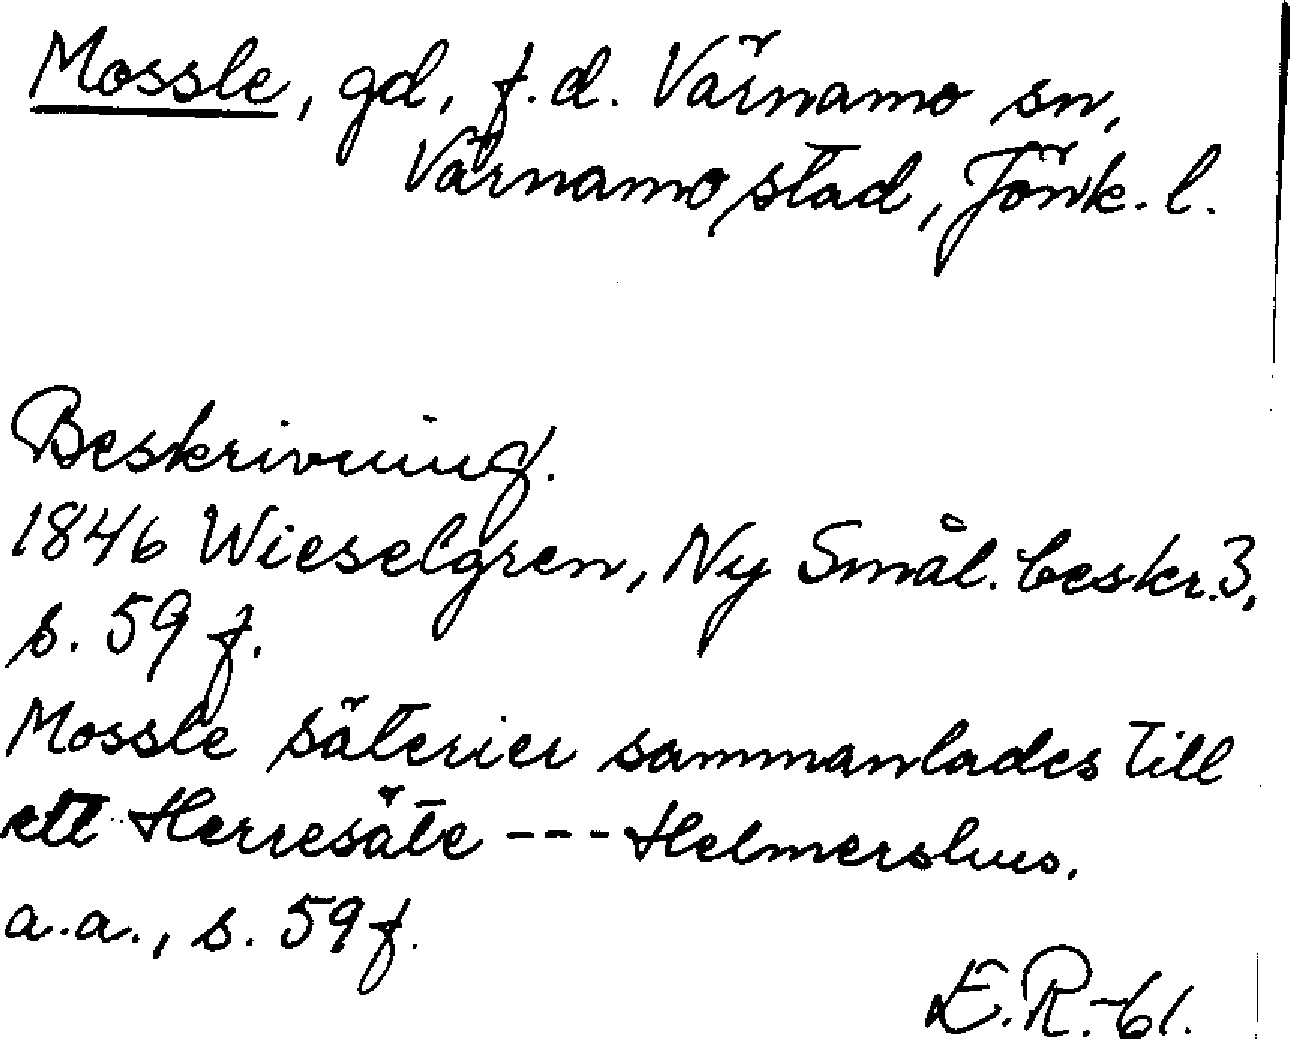 Mossle, gd, f.d. Värnamo sn,
Värnamo stad, Jönk. l.
Beskrivning.
1846 Wieselgren, Ny Smål. beskr. 3,
s. 59 f.
Mossle säterier sammanlades till
ett Herresäte --- Helmershus.
a.a., s. 59 f.
E.R.-61.